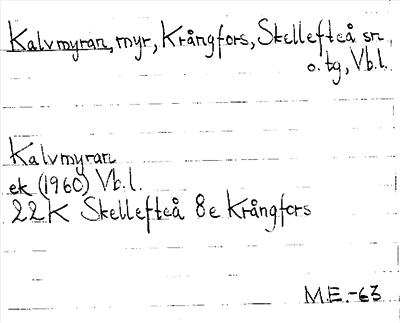 Kalvmyran, myr, Krångfors, Skellefteå sn
o. tg, Vb.l.
Kalvmyran
ek (1960) Vb.l.
22K Skellefteå 8e Krångfors
M.E.-63